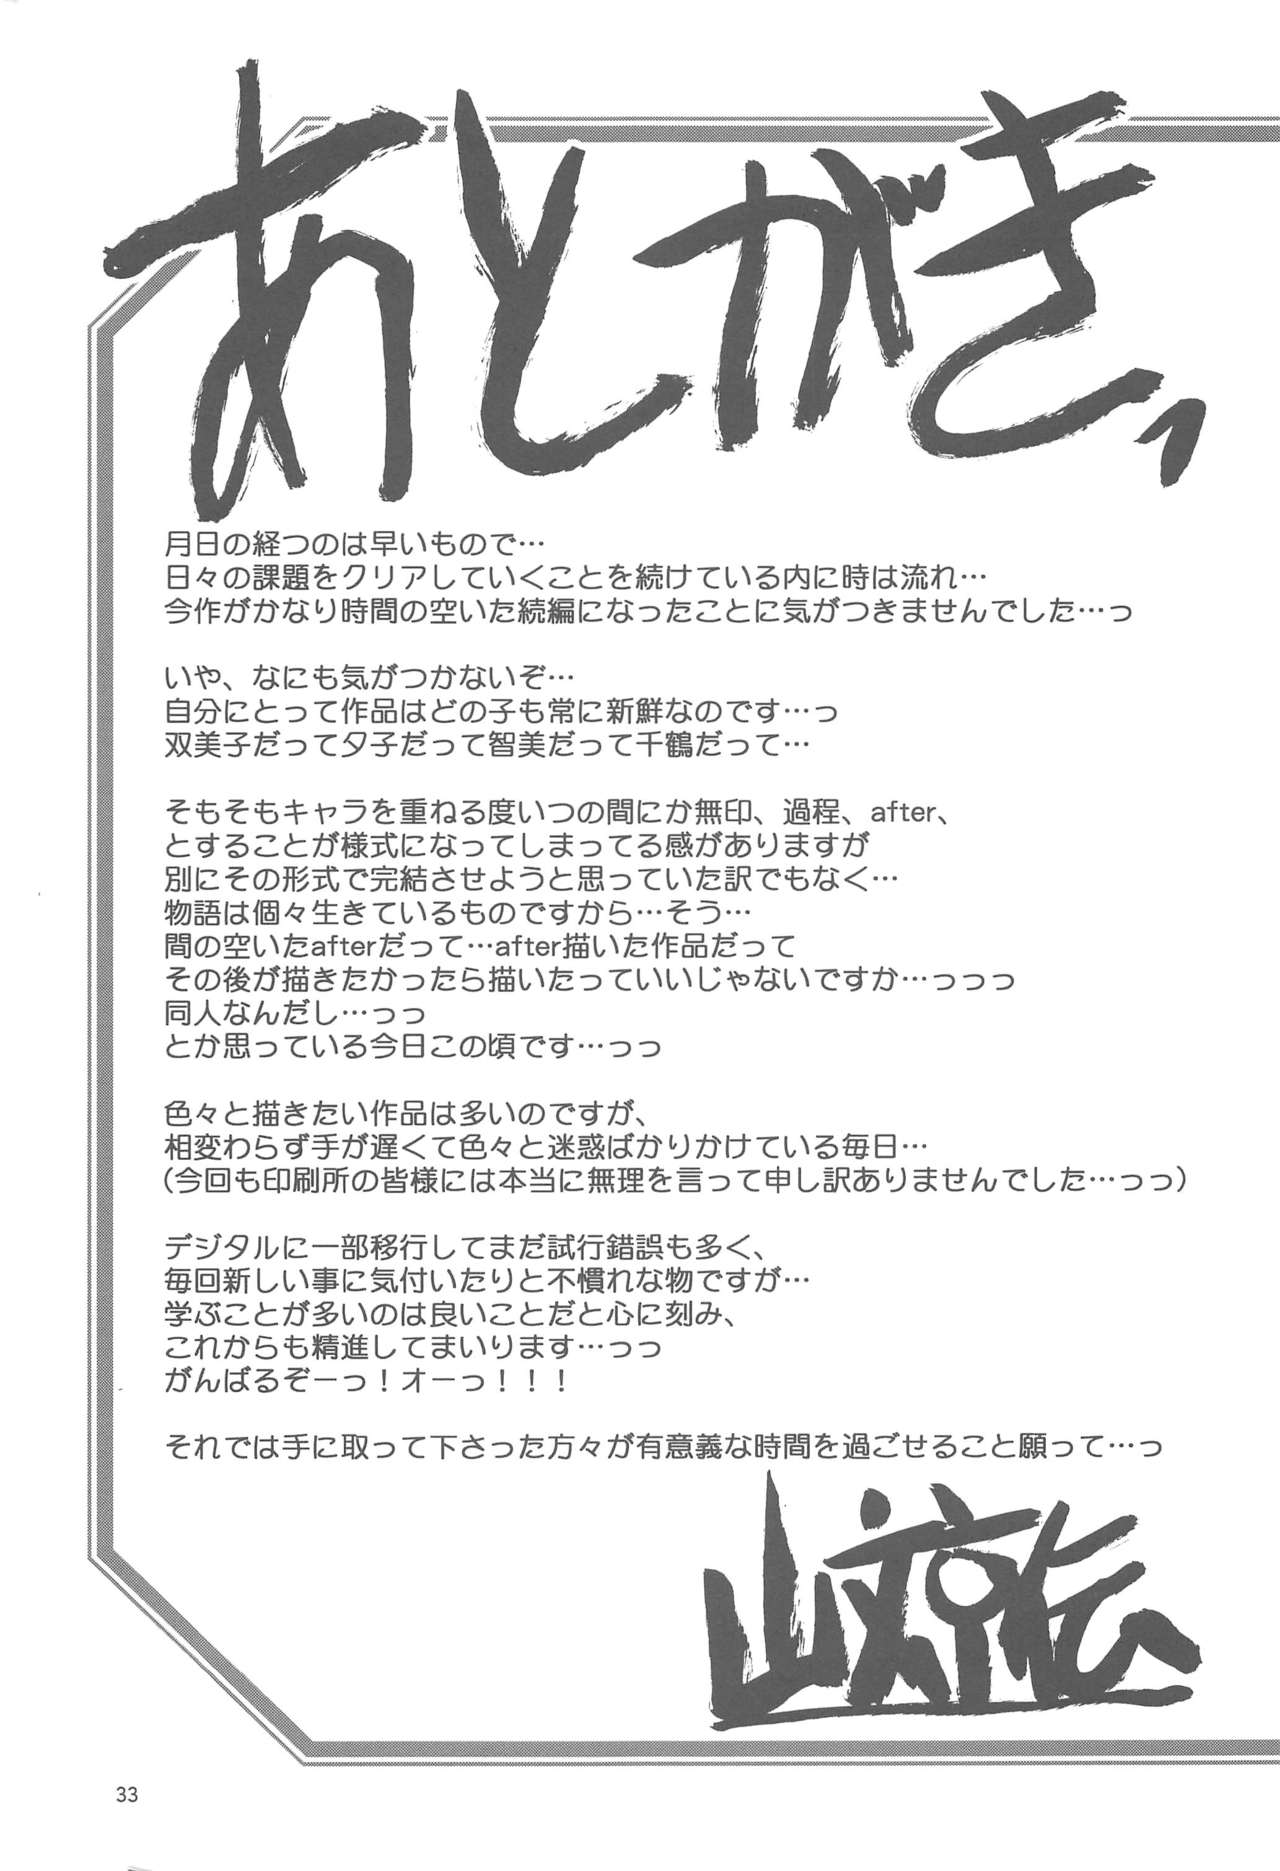 あとがきっ
月日の経つのは早いもので…
日々の課題をクリアしていくことを続けている内に時は流れ…
今作がかなり時間の空いた続編になったことに気がつきませんでした…っ
いや、なにも気がつかないぞ…
自分にとって作品はどの子も常に新鮮なのです…っ
双美子だって夕子だって智美だって千鶴だって…
そもそもキャラを重ねる度いつの間にか無印、過程、after、
とすることが様式になってしまってる感がありますが
別にその形式で完結させようと思っていた訳でもなく…
物語は個々生きているものですから…そう…
間の空いたafterだって…after描いた作品だって
その後が描きたかったら描いたっていいじゃないですか…っっっ
同人なんだし…っっ
とか思っている今日この頃です…っっ
色々と描きたい作品は多いのですが、
相変わらず手が遅くて色々と迷惑ばかりかけている毎日…
(今回も印刷所の皆様には本当に無理を言って申し訳ありませんでした…っっ)
デジタルに一部移行してまだ試行錯誤も多く、
毎回新しい事に気付いたりと不慣れな物ですが…
学ぶことが多いのは良いことだと心に刻み、
これからも精進してまいります…っっ
がんばるぞーっ！オーっ！！！
それでは手に取って下さった方々が有意義な時間を過ごせること願って…っ
山文京伝
33